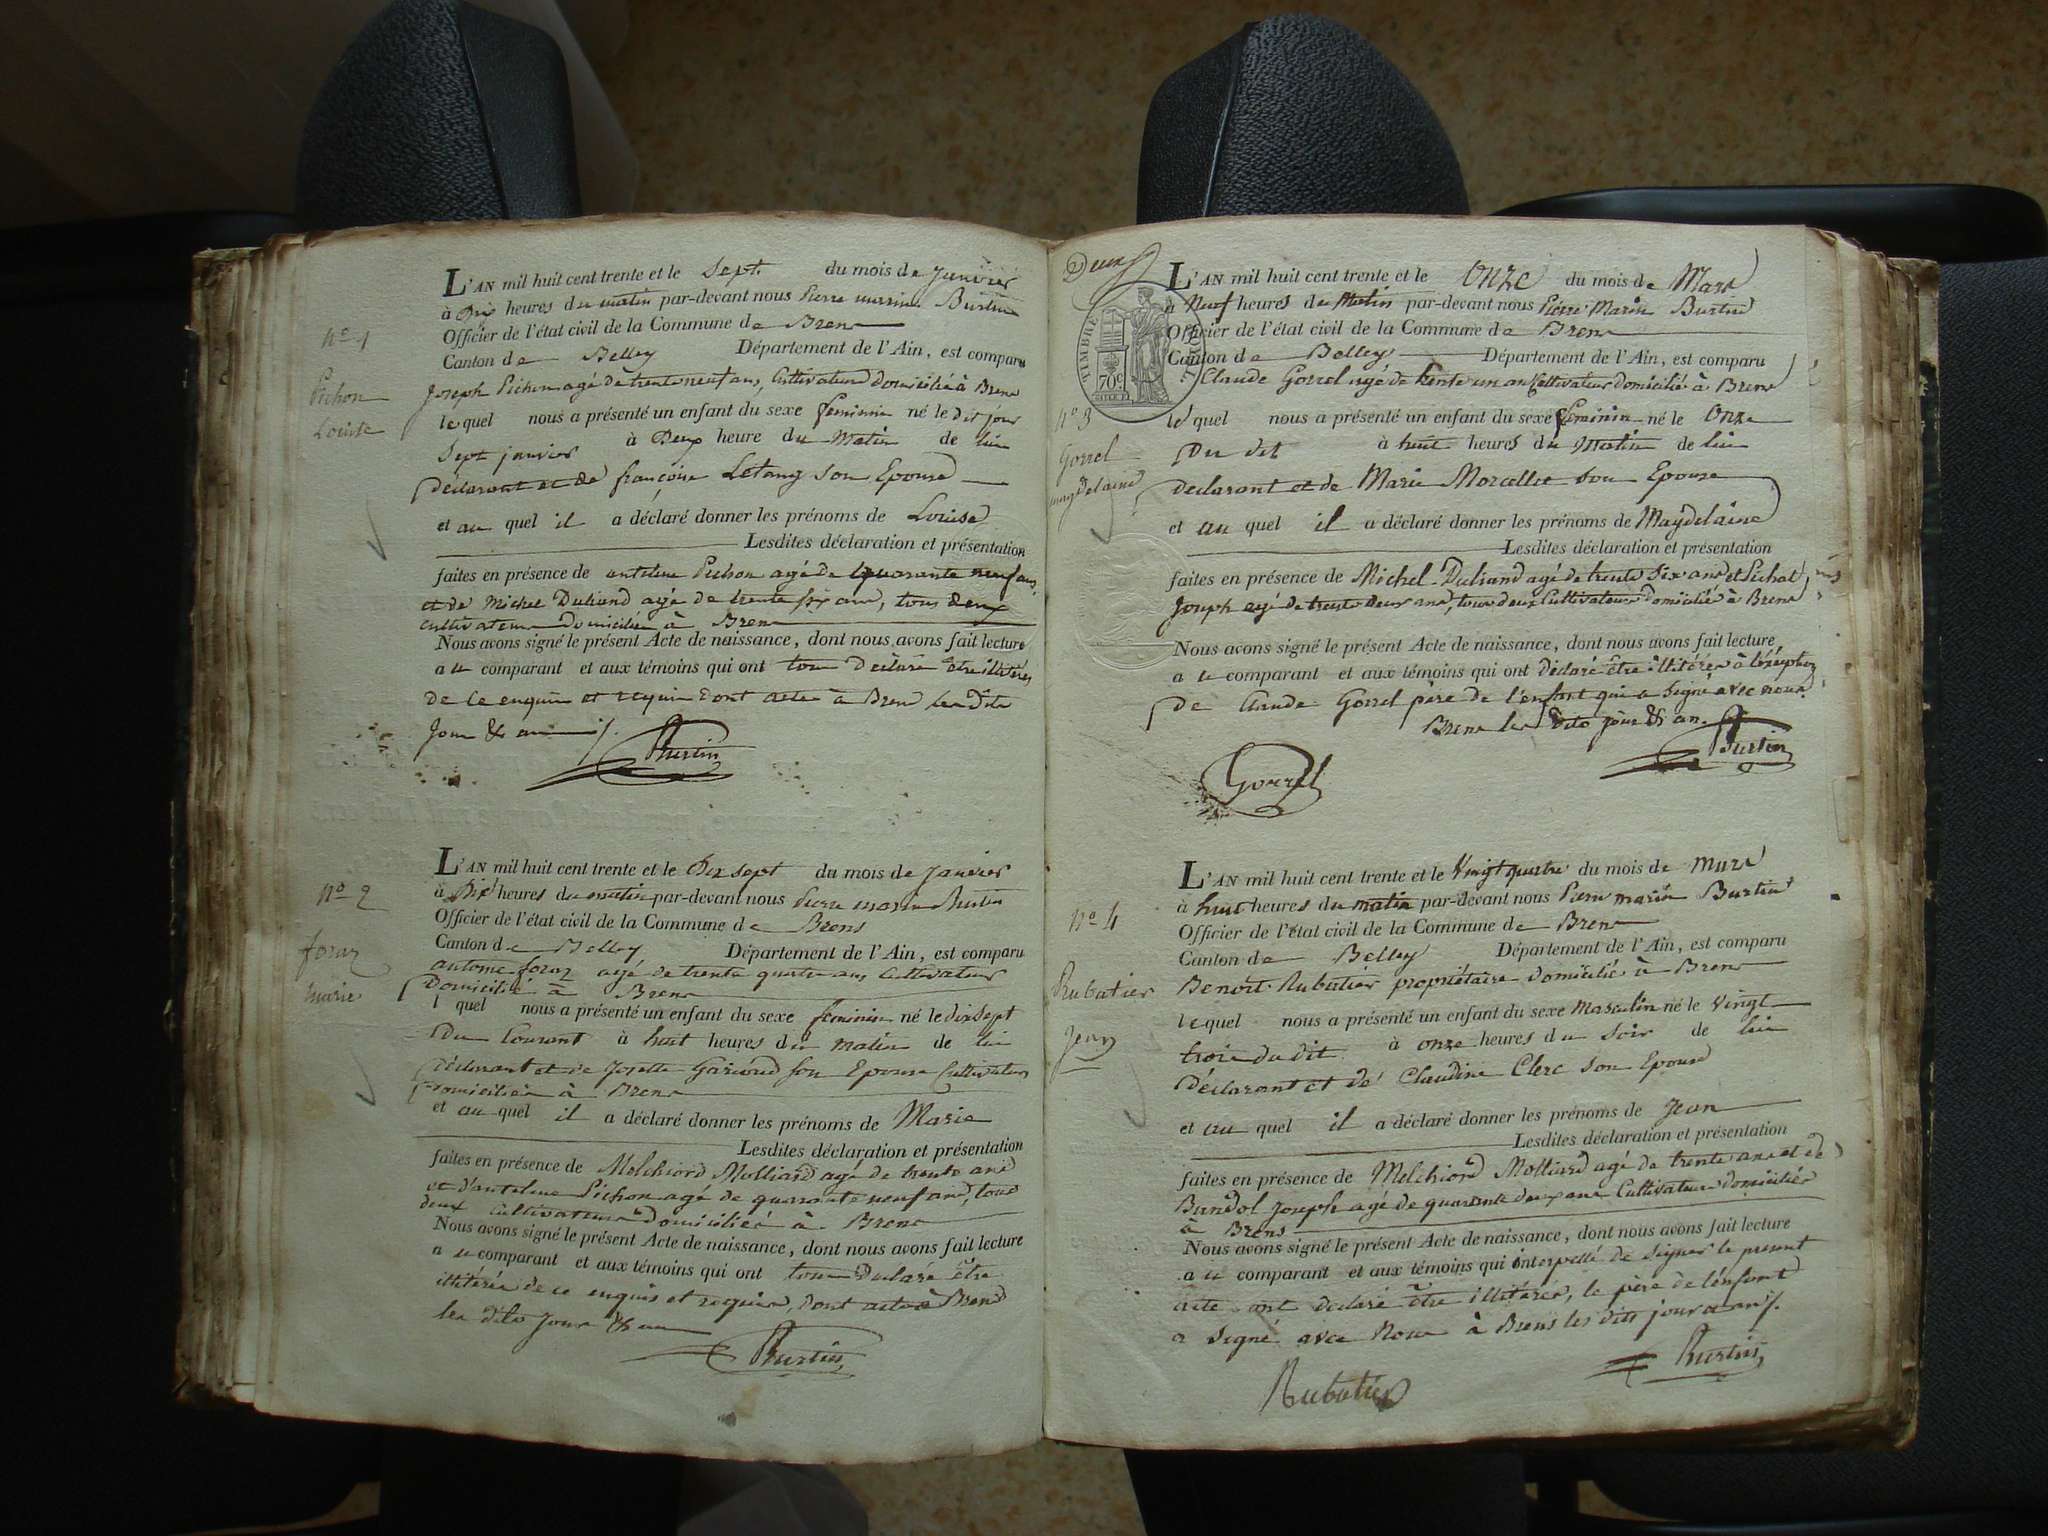 L'AN mil huit cent trente et le Sept. du mois de Janvier
à Dix heures du matin par-devant nous Pierre marin Burtin
Officier de l'état civil de la Commune de Brens
Canton de Belley Département de l'Ain, est comparu
Joseph Pichon agé de trente neuf ans, Cultivateur domicilié à Brens
lequel nous a présenté un enfant du sexe feminin né le dit jour
Sept janvier à Deux heure du Matin de lui
déclarant et de françoise Letang son Epouse
et au quel il a déclaré donner les prénoms de Louise
Lesdites déclaration et présentation
faites en présence de antelme Pichon agé de quarante neuf ans
et de Michel Dutrand agé de trente six ans, tous deux
cultivateurs domiciliés à Brens
Nous avons signé le présent Acte de naissance, dont nous avons fait lecture
a u comparant et aux témoins qui ont tous déclaré être illitérés
de ce enquis et requis dont acte à Brens les dits
Jour & an
Burtin
nº 1
Pichon
Louise
L'AN mil huit cent trente et le Dix sept du mois de Janvier
à Dix heures du matin par-devant nous Pierre marin Burtin
Officier de l'état civil de la Commune de Brens
Canton de Belley Département de l'Ain, est comparu
antoine foraz agé de trente quatre ans Cultivateur
Domicilié à Brens
l quel nous a présenté un enfant du sexe feminin né le dix sept
Du Courant à huit heures du matin de lui
déclarant et de Josette son Epouse Cultivateurs
Domiciliés à Brens
et au quel il a déclaré donner les prénoms de Marie
Lesdites déclaration et présentation
faites en présence de Melchiord Molliard agé de trente ans
et d'antelme Pichon agé de quarante neuf ans, tous
deux Cultivateurs domiciliés à Brens
Nous avons signé le présent Acte de naissance, dont nous avons fait lecture
a u comparant et aux témoins qui ont tous déclaré être
illitérés de ce enquis et requis, dont acte à Brens
les dits Jour & an
Burtin
nº 2
foraz
marie
2 Deux
TIMBRE ROYAL
70c
L'AN mil huit cent trente et le Onze du mois de Mars
à Neuf heures du Matin par-devant nous Pierre Marin Burtin
Officier de l'état civil de la Commune de Brens
Canton de Belley Département de l'Ain, est comparu
Claude Gorrel agé de trente un an Cultivateur domicilié à Brens
lequel nous a présenté un enfant du sexe feminin né le Onze
Du dit à huit heures du Matin de lui
déclarant et de Marie son Epouse
et au quel il a déclaré donner les prénoms de Magdelaine
Lesdites déclaration et présentation
faites en présence de Michel Dutrand agé de trente six ans et Pichat
Joseph agé de trente deux ans, tous deux Cultivateurs domicilié à Brens
Nous avons signé le présent Acte de naissance, dont nous avons fait lecture
a u comparant et aux témoins qui ont déclaré être illitérés à l'éxeption
De Claude Gorrel père de l'enfant qui a Signé avec nous
Brens les dits jour & an
Burtin
Gorrel
nº 3
Gorrel
magdelaine
L'AN mil huit cent trente et le Vingt quatre du mois de mars
à huit heures du matin par-devant nous Pierre marin Burtin
Officier de l'état civil de la Commune de Brens
Canton de Belley Département de l'Ain, est comparu
Benoit Rubatier propriétaire domicilié à Brens
lequel nous a présenté un enfant du sexe Masculin né le Vingt
trois du dit à onze heures du Soir de lui
déclarant et de Claudine Clerc son Epouse
et au quel il a déclaré donner les prénoms de Jean
Lesdites déclaration et présentation
faites en présence de Melchiord Molliard agé de trente ans et de
Joseph agé de quarante deux ans Cultivateurs domiciliés
à Brens
Nous avons signé le présent Acte de naissance, dont nous avons fait lecture
a u comparant et aux témoins qui interpellé de Signer le present
acte ont déclaré être illitérés, le père de l'enfant
a Signé avec Nous à Brens les dits jour & an
Burtin
Rubatier
nº 4
Rubatier
Jean